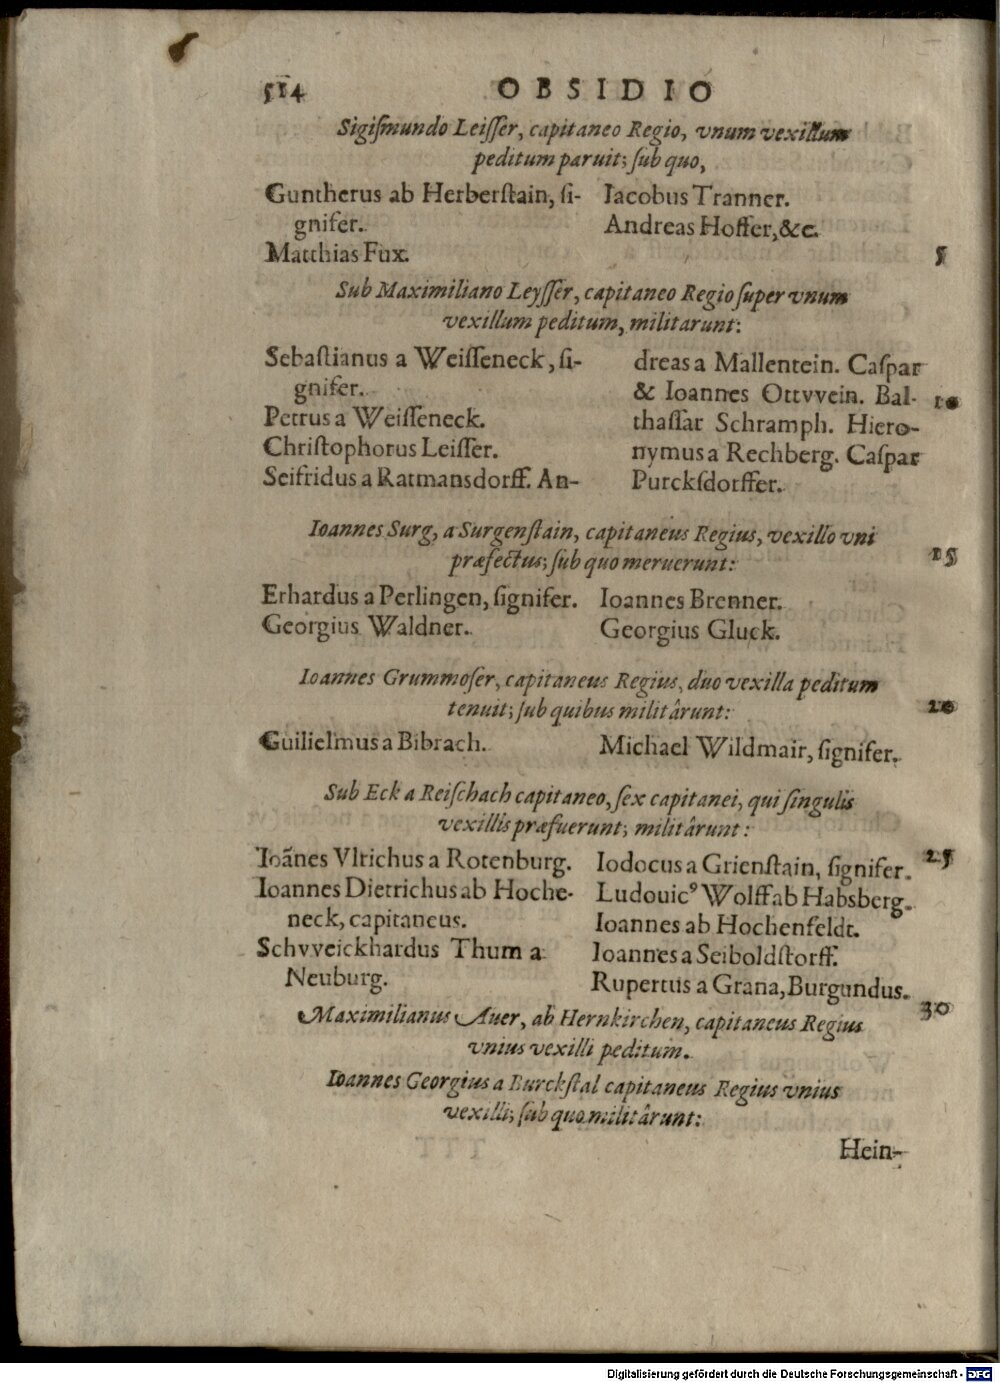 514 OBSIDIO
Sigiſmundo Leiſſer, capitaneo Regio, vnum vexillum
peditum paruit; ſub quo,
Guntherus ab Herberſtain, ſi-
gnifer.
Matthias Fux.
Iacobus Tranner.
Andreas Hoffer, &c.
5
Sub Maximiliano Leyſſer, capitaneo Regio ſuper vnum
vexillum peditum, militarunt:
Sebaſtianus a Weiſſeneck, ſi-
gnifer.
Petrus a Weiſſeneck.
Chriſtophorus Leiſſer.
Seifridus a Ratmansdorff. An-
dreas a Mallentein. Caſpar
& Ioannes Ottvvein. Bal-
10
thaſſar Schramph. Hiero-
nymus a Rechberg. Caſpar
Purckſdorffer.
Ioannes Surg, a Surgenſtain, capitaneus Regius, vexillo vni
præfectus; ſub quo meruerunt:
15
Erhardus a Perlingen, ſignifer.
Georgius Waldner.
Ioannes Brenner.
Georgius Gluck.
Ioannes Grummoſer, capitaneus Regius, duo vexilla peditum
tenuit; ſub quibus militârunt:
20
Guilielmus a Bibrach.
Michael Wildmair, ſignifer.
Sub Eck a Reiſchach capitaneo, ſex capitanei, qui ſingulis
vexillis præfuerunt; militârunt:
Ioãnes Vlrichus a Rotenburg.
Ioannes Dietrichus ab Hoche-
neck, capitaneus.
Schvveickhardus Thum a
Neuburg.
Iodocus a Grienſtain, ſignifer.
25
Ludouicꝰ Wolff ab Habsberg.
Ioannes ab Hochenfeldt.
Ioannes a Seiboldſtorff.
Rupertus a Grana, Burgundus.
Maximilianus Auer, ab Hernkirchen, capitaneus Regius
30
vnius vexilli peditum.
Ioannes Georgius a Burckſtal capitaneus Regius vnius
vexilli; ſub quo militârunt:
Hein-
Digitalisierung gefördert durch die Deutsche Forschungsgemeinschaft - DFG